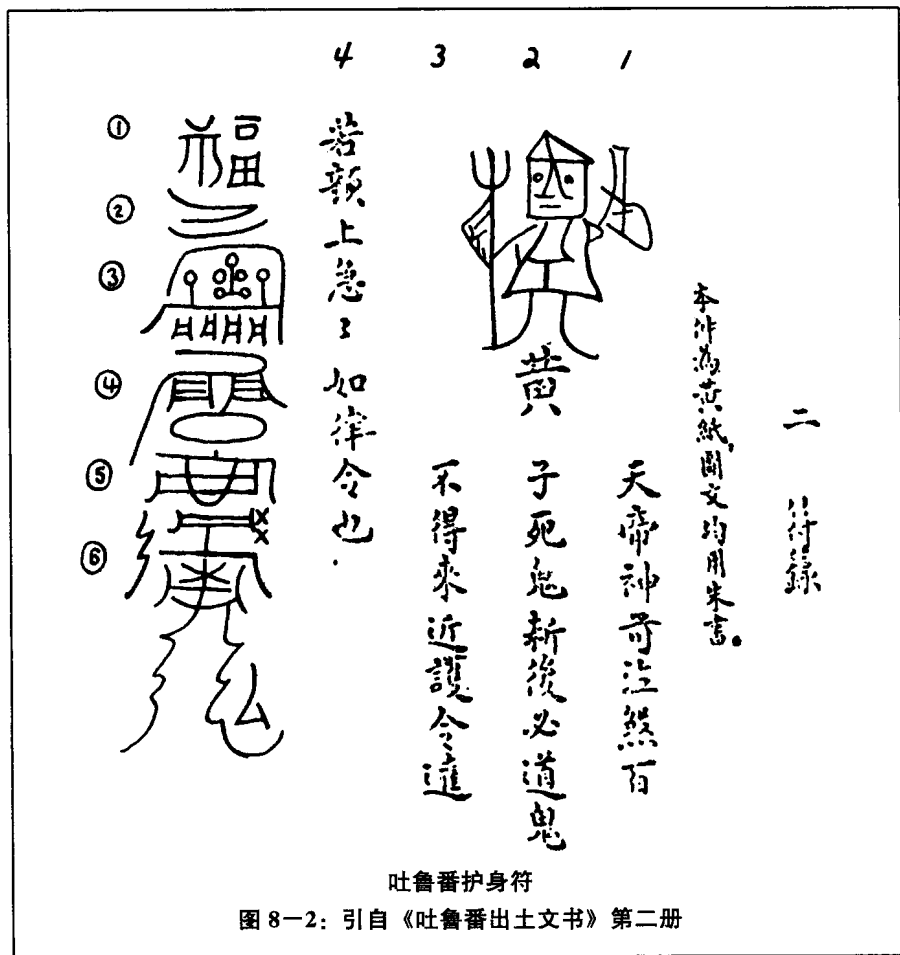 4 3 2 1
二 符錄
本件為黃紙,圖文均用朱書。
天帝神 煞百
黃
子死鬼斬後必道鬼
不得來近護令進
若頭上急〻如律令也.
① 福
②
③
④
⑤
⑥
吐鲁番护身符
图 8-2:引自《吐鲁番出土文书》第二册